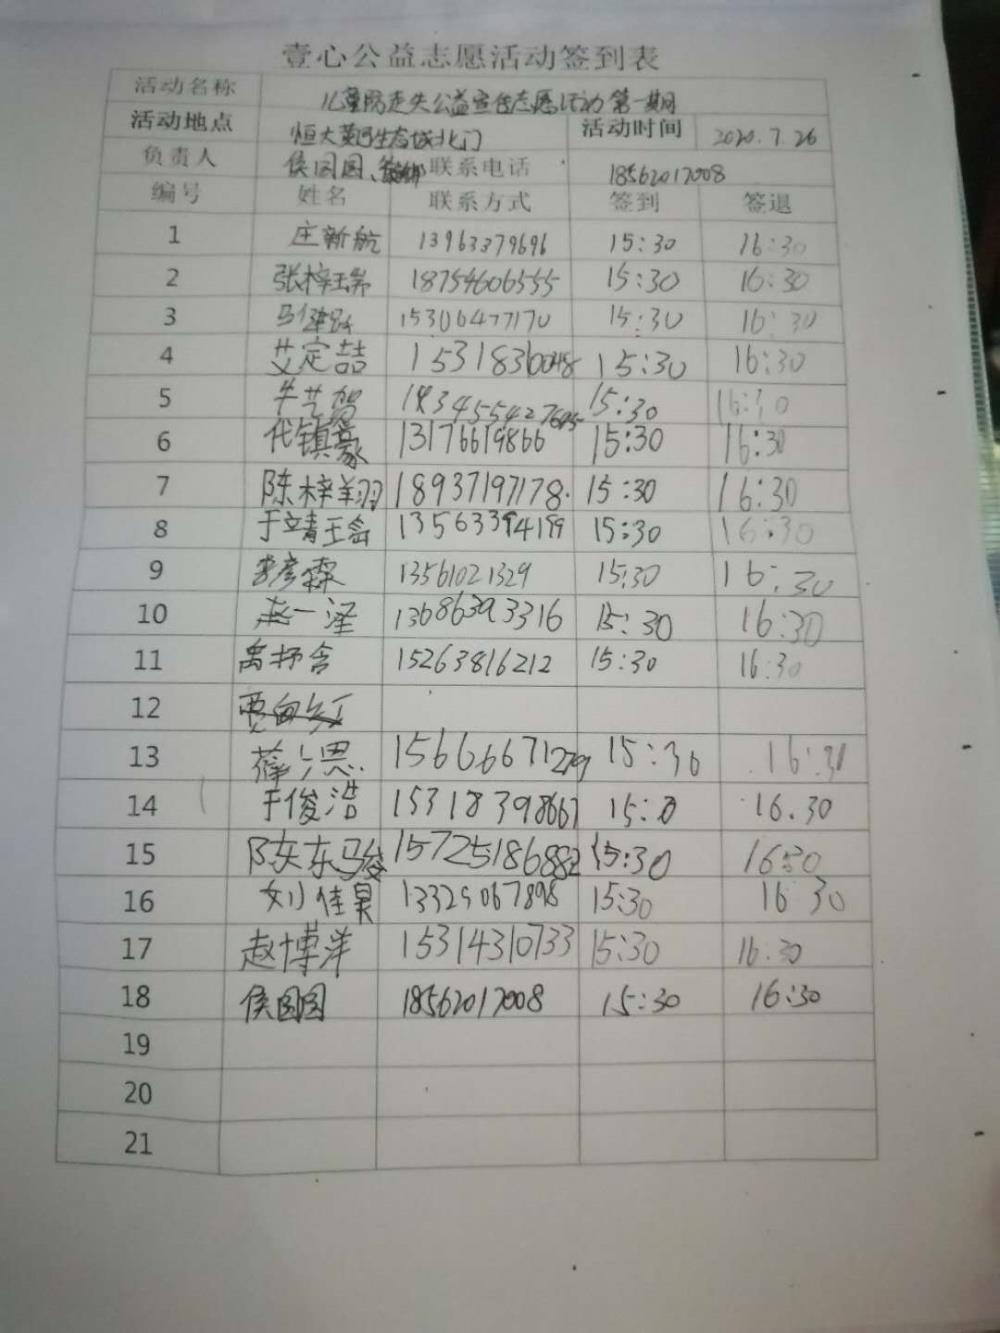 壹心公益志愿活动签到表
活动名称 儿童防走失公益宣传志愿活动第一期
活动地点 恒大黄河生态城北门 活动时间 2020.7.26
负责人 侯园园、 联系电话 18562017008
编号 姓名 联系方式 签到 签退
1 庄新航 13963379696 15:30 16:30
2 张梓瑞 18754606555 15:30 16:30
3 15306477170 15:30 16:30
4 艾定喆 15318360048 15:30 16:30
5 牛艺贺 15:30 16:30
6 代镇豪 13176619866 15:30 16:30
7 陈梓翔 18937197178. 15:30 16:30
8 于靖磊 13563394199 15:30 16:30
9 李彦霖 13561021329 15:30 16:30
10 赵一泽 13686393316 15:30 16:30
11 禹抒含 15263816212 15:30 16:30
12
13 薛 恩 15666671279 15:30 16:30
14 于俊浩 15318398667 15: 0 16.30
15 陈东骏 15725186882 15:30 16:30
16 刘佳昊 13325067898 15:30 16 30
17 赵博洋 15314310733 15:30 16:30
18 侯园园 18562017008 15:30 16:30
19
20
21